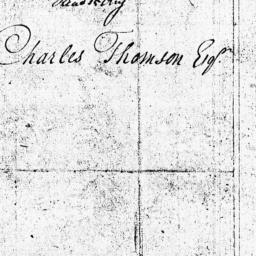 Charles Thomson Esqr.